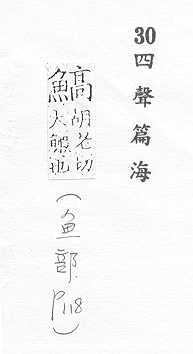 30四聲篇海
鰝胡老切
大鰕也
(鱼部. P118)